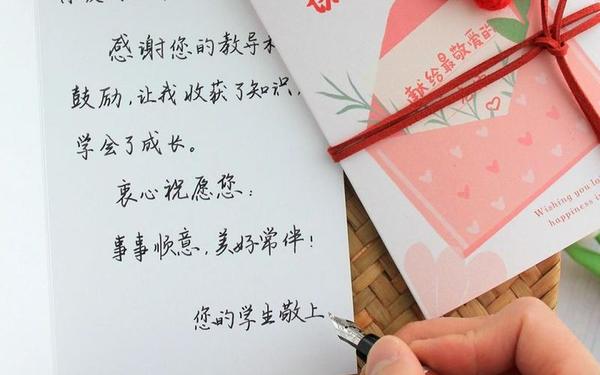 感谢您的教导和
鼓励,让我收获了知识,
学会了成长。
衷心祝愿您:
事事顺意,美好常伴!
您的学生敬上
献给最敬爱的
Wishing you
happiness